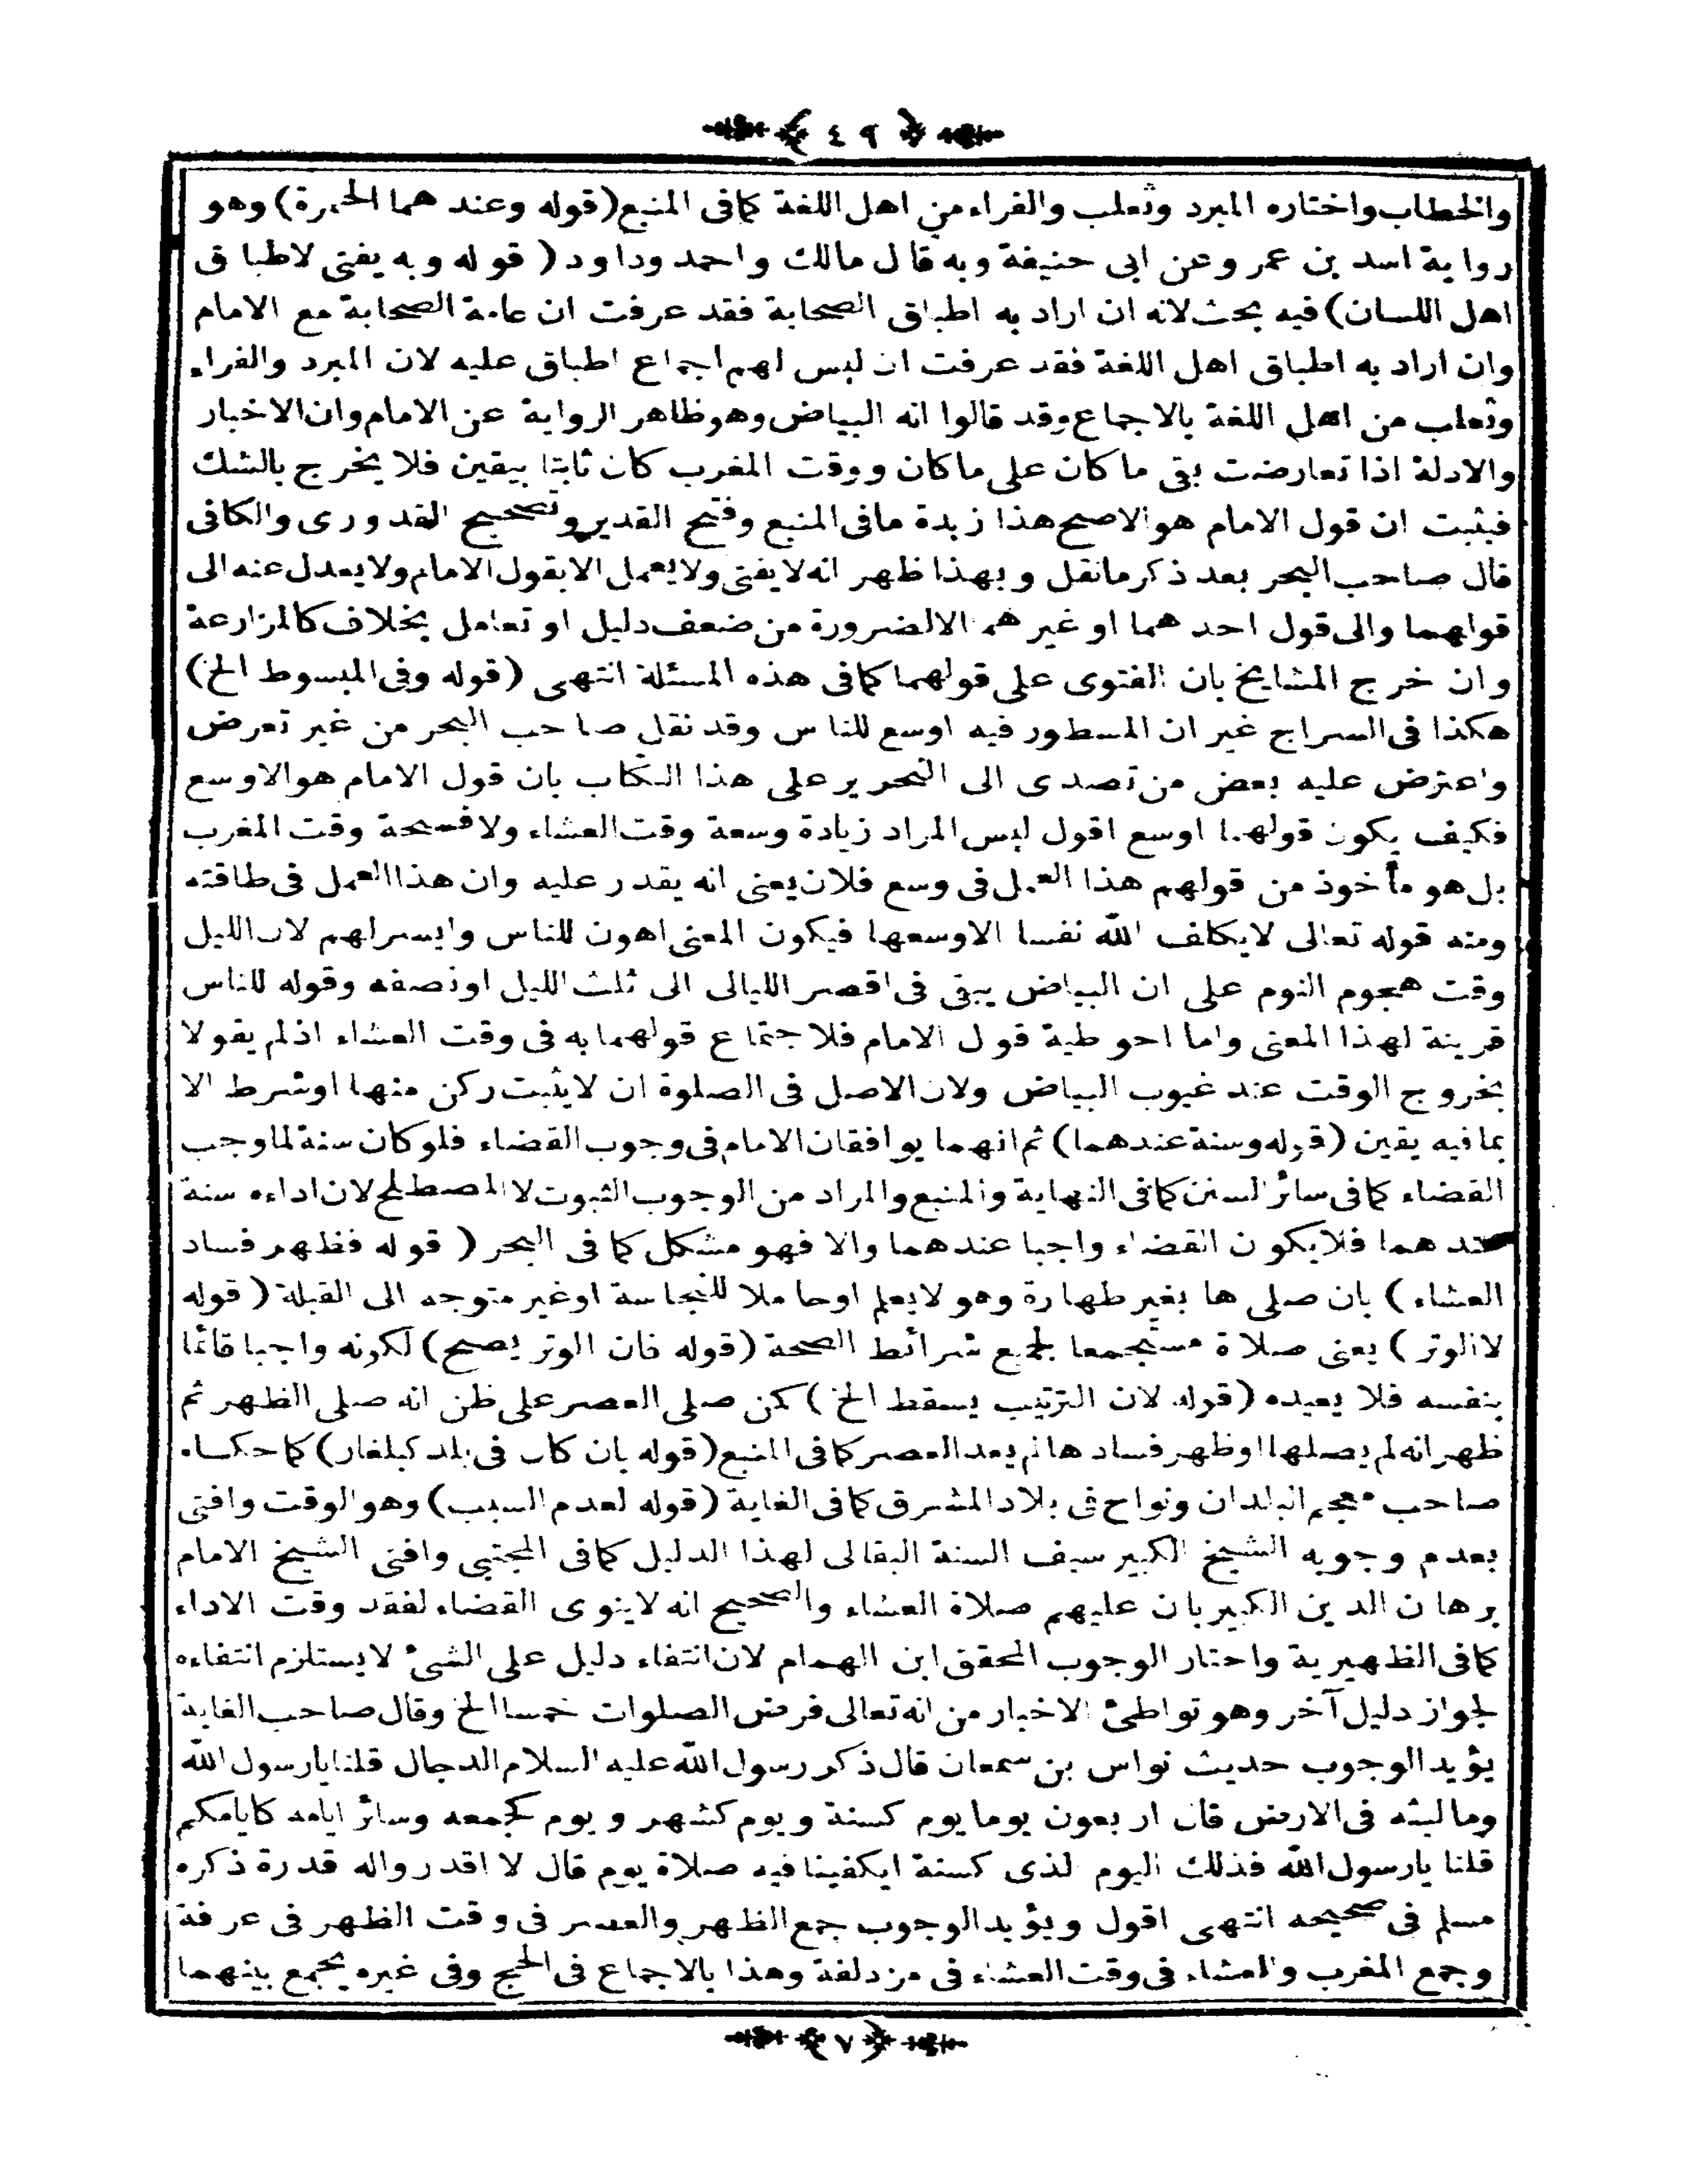 ﴿ ٤٩ ﴾
والخطاب واختاره المبرد وثعلب والفراء من اهل اللغة كما فى المنبع (قوله وعند هما الحمرة) وهو
رواية اسد بن عمر وعن ابى حنيفة وبه قال مالك واحمد وداود ( قوله وبه يفتى لاطباق
اهل اللسان) فيه بحث لانه ان اراد به اطباق الصحابة فقد عرفت ان عامة الصحابة مع الامام
وان اراد به اطباق اهل اللغة فقد عرفت ان ليس لهم اجماع اطباق عليه لان المبرد والفراء
وثعلب من اهل اللغة بالاجماع وقد قالوا انه البياض وهو ظاهر الرواية عن الامام وان الاخبار
والادلة اذا تعارضت بقى ما كان على ما كان ووقت المغرب كان ثابتا بيقين فلا يخرج بالشك
فيثبت ان قول الامام هو الاصح هذا زبدة ما فى المنبع وفتح القدير وتصحيح القدورى والكافى
قال صاحب البحر بعد ذكر ما نقل وبهذا ظهر انه لا يفتى ولا يعمل الا بقول الامام ولا يعدل عنه الى
قولهما والى قول احد هما او غير هما الا لضرورة من ضعف دليل او تعامل بخلاف كالمزارعة
وان خرج المشايخ بان الفتوى على قولهما كما فى هذه المسئلة انتهى (قوله وفى المبسوط الخ)
هكذا فى السراج غير ان المسطور فيه اوسع للناس وقد نقل صاحب البحر من غير تعرض
واعترض عليه بعض من تصدى الى التحرير على هذا الكتاب بان قول الامام هو الاوسع
فكيف يكون قولهما اوسع اقول ليس المراد زيادة وسعة وقت العشاء ولا فسحة وقت المغرب
بل هو مأخوذ من قولهم هذا العمل فى وسع فلان يعنى انه يقدر عليه وان هذا العمل فى طاقته
ومنه قوله تعالى لا يكلف الله نفسا الا وسعها فيكون المعنى اهون للناس وايسر لهم لان الليل
وقت هجوم النوم على ان البياض يبقى فى اقصر الليالى الى ثلث الليل او نصفه وقوله للناس
قرينة لهذا المعنى واما احوطية قول الامام فلاجتماع قولهما به فى وقت العشاء اذ لم يقولا
بخروج الوقت عند غيوب البياض ولان الاصل فى الصلوة ان لا يثبت ركن منها او شرط الا
بما فيه يقين (قوله وسنة عندهما) ثم انهما يوافقان الامام فى وجوب القضاء فلو كان سنة لما وجب
القضاء كما فى سائر السنن كما فى النهاية والمنبع والمراد من الوجوب الثبوت لا المصطلح لان اداءه سنة
عند هما فلا يكون القضاء واجبا عندهما والا فهو مشكل كما فى البحر ( قوله فظهر فساد
العشاء ) بان صلى ها بغير طهارة وهو لا يعلم او حاملا للنجاسة او غير متوجه الى القبلة ( قوله
لا الوتر ) يعنى صلاة مستجمعا لجميع شرائط الصحة (قوله فان الوتر يصح) لكونه واجبا قائما
بنفسه فلا يعيده (قوله لان الترتيب يسقط الخ) كمن صلى العصر على ظن انه صلى الظهر ثم
ظهر انه لم يصلها او ظهر فساد ها لم يعد العصر كما فى المنبع (قوله بان كان فى بلد كبلغار) كما حكاه
صاحب معجم البلدان ونواح فى بلاد المشرق كما فى الغاية (قوله لعدم السبب) وهو الوقت وافتى
بعدم وجوبه الشيخ الكبير سيف السنة البقالى لهذا الدليل كما فى المجتبى وافتى الشيخ الامام
برهان الدين الكبير بان عليهم صلاة العشاء والصحيح انه لا ينوى القضاء لفقد وقت الاداء
كما فى الظهيرية واختار الوجوب المحقق ابن الهمام لان انتفاء دليل على الشئ لا يستلزم انتفاءه
لجواز دليل آخر وهو تواطئ الاخبار من انه تعالى فرض الصلوات خمسا الخ وقال صاحب الغاية
يؤيد الوجوب حديث نواس بن سمعان قال ذكر رسول الله عليه السلام الدجال قلنا يا رسول الله
وما لبثه فى الارض قال اربعون يوما يوم كسنة ويوم كشهر ويوم كجمعه وسائر ايامه كايامكم
قلنا يا رسول الله فذلك اليوم لذى كسنة ايكفينا فيه صلاة يوم قال لا اقدر واله قدرة ذكره
مسلم فى صحيحه انتهى اقول ويؤيد الوجوب جمع الظهر والعصر فى وقت الظهر فى عرفة
وجمع المغرب والعشاء فى وقت العشاء فى مزدلفة وهذا بالاجماع فى الحج وفى غيره يجمع بينهما
﴿ ٧ ﴾